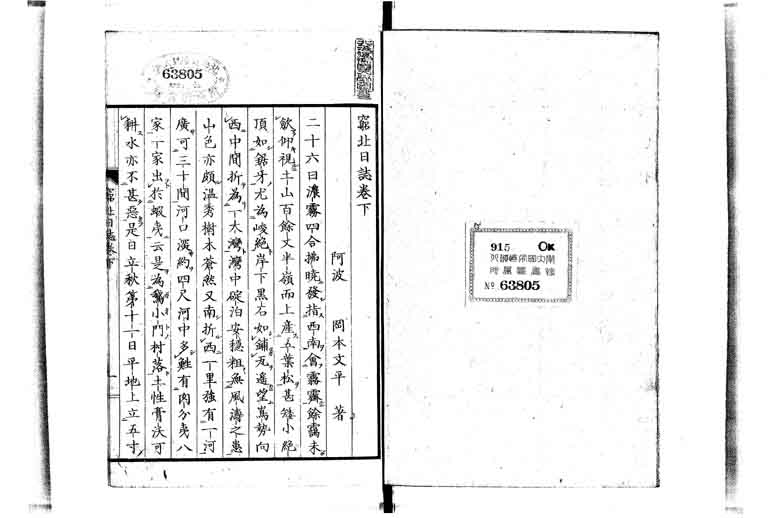 窮北日誌卷下
阿波 岡本文平 著
二十六日濃霧四合拂曉發指西南會霧霽餘靄未
歛仰視土山百餘丈半嶺而上產五葉松甚矮小絕
頂如鋸牙尤為峻絕岸下黑石如鋪瓦遙望嶌勢向
西中間折為一大灣灣中碇泊安穩粗無風濤之患
山色亦頗溫秀樹木蒼然又南折西一里強有一河
廣可三十間河口淺約四尺河中多魚有肉分夷八
家一家出於蝦夷云是為小門村落土性膏沃可
耕水亦不甚惡是日立秋第十一日平地上立五寸
窮北日誌卷下
63805
915 OK
№ 63805